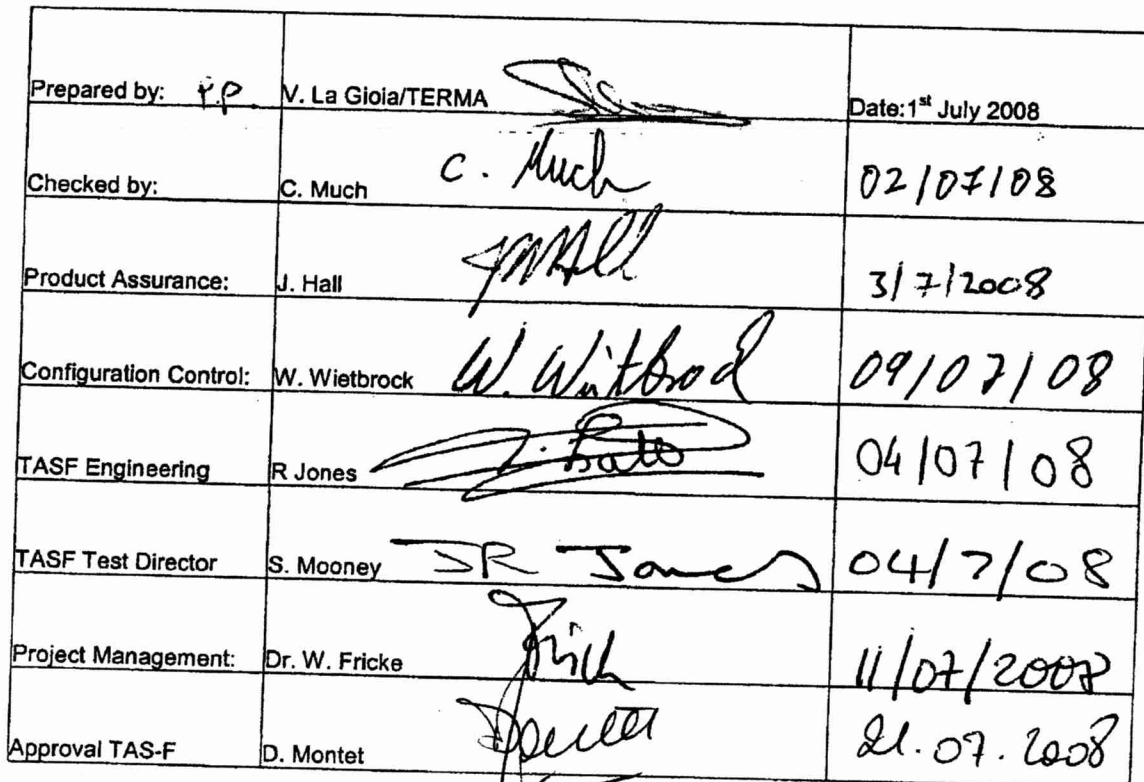 Prepared by: P.P. V. La Gioia/TERMA Date:1st July 2008
Checked by: C. Much C. Much 02/07/08
Product Assurance: J. Hall JMHall 3/7/2008
Configuration Control: W. Wietbrock W. Wietbrock 09/07/08
TASF Engineering R Jones 04/07/08
TASF Test Director S. Mooney JR Jones 04/7/08
Project Management: Dr. W. Fricke 11/07/2008
Approval TAS-F D. Montet 21.07.2008